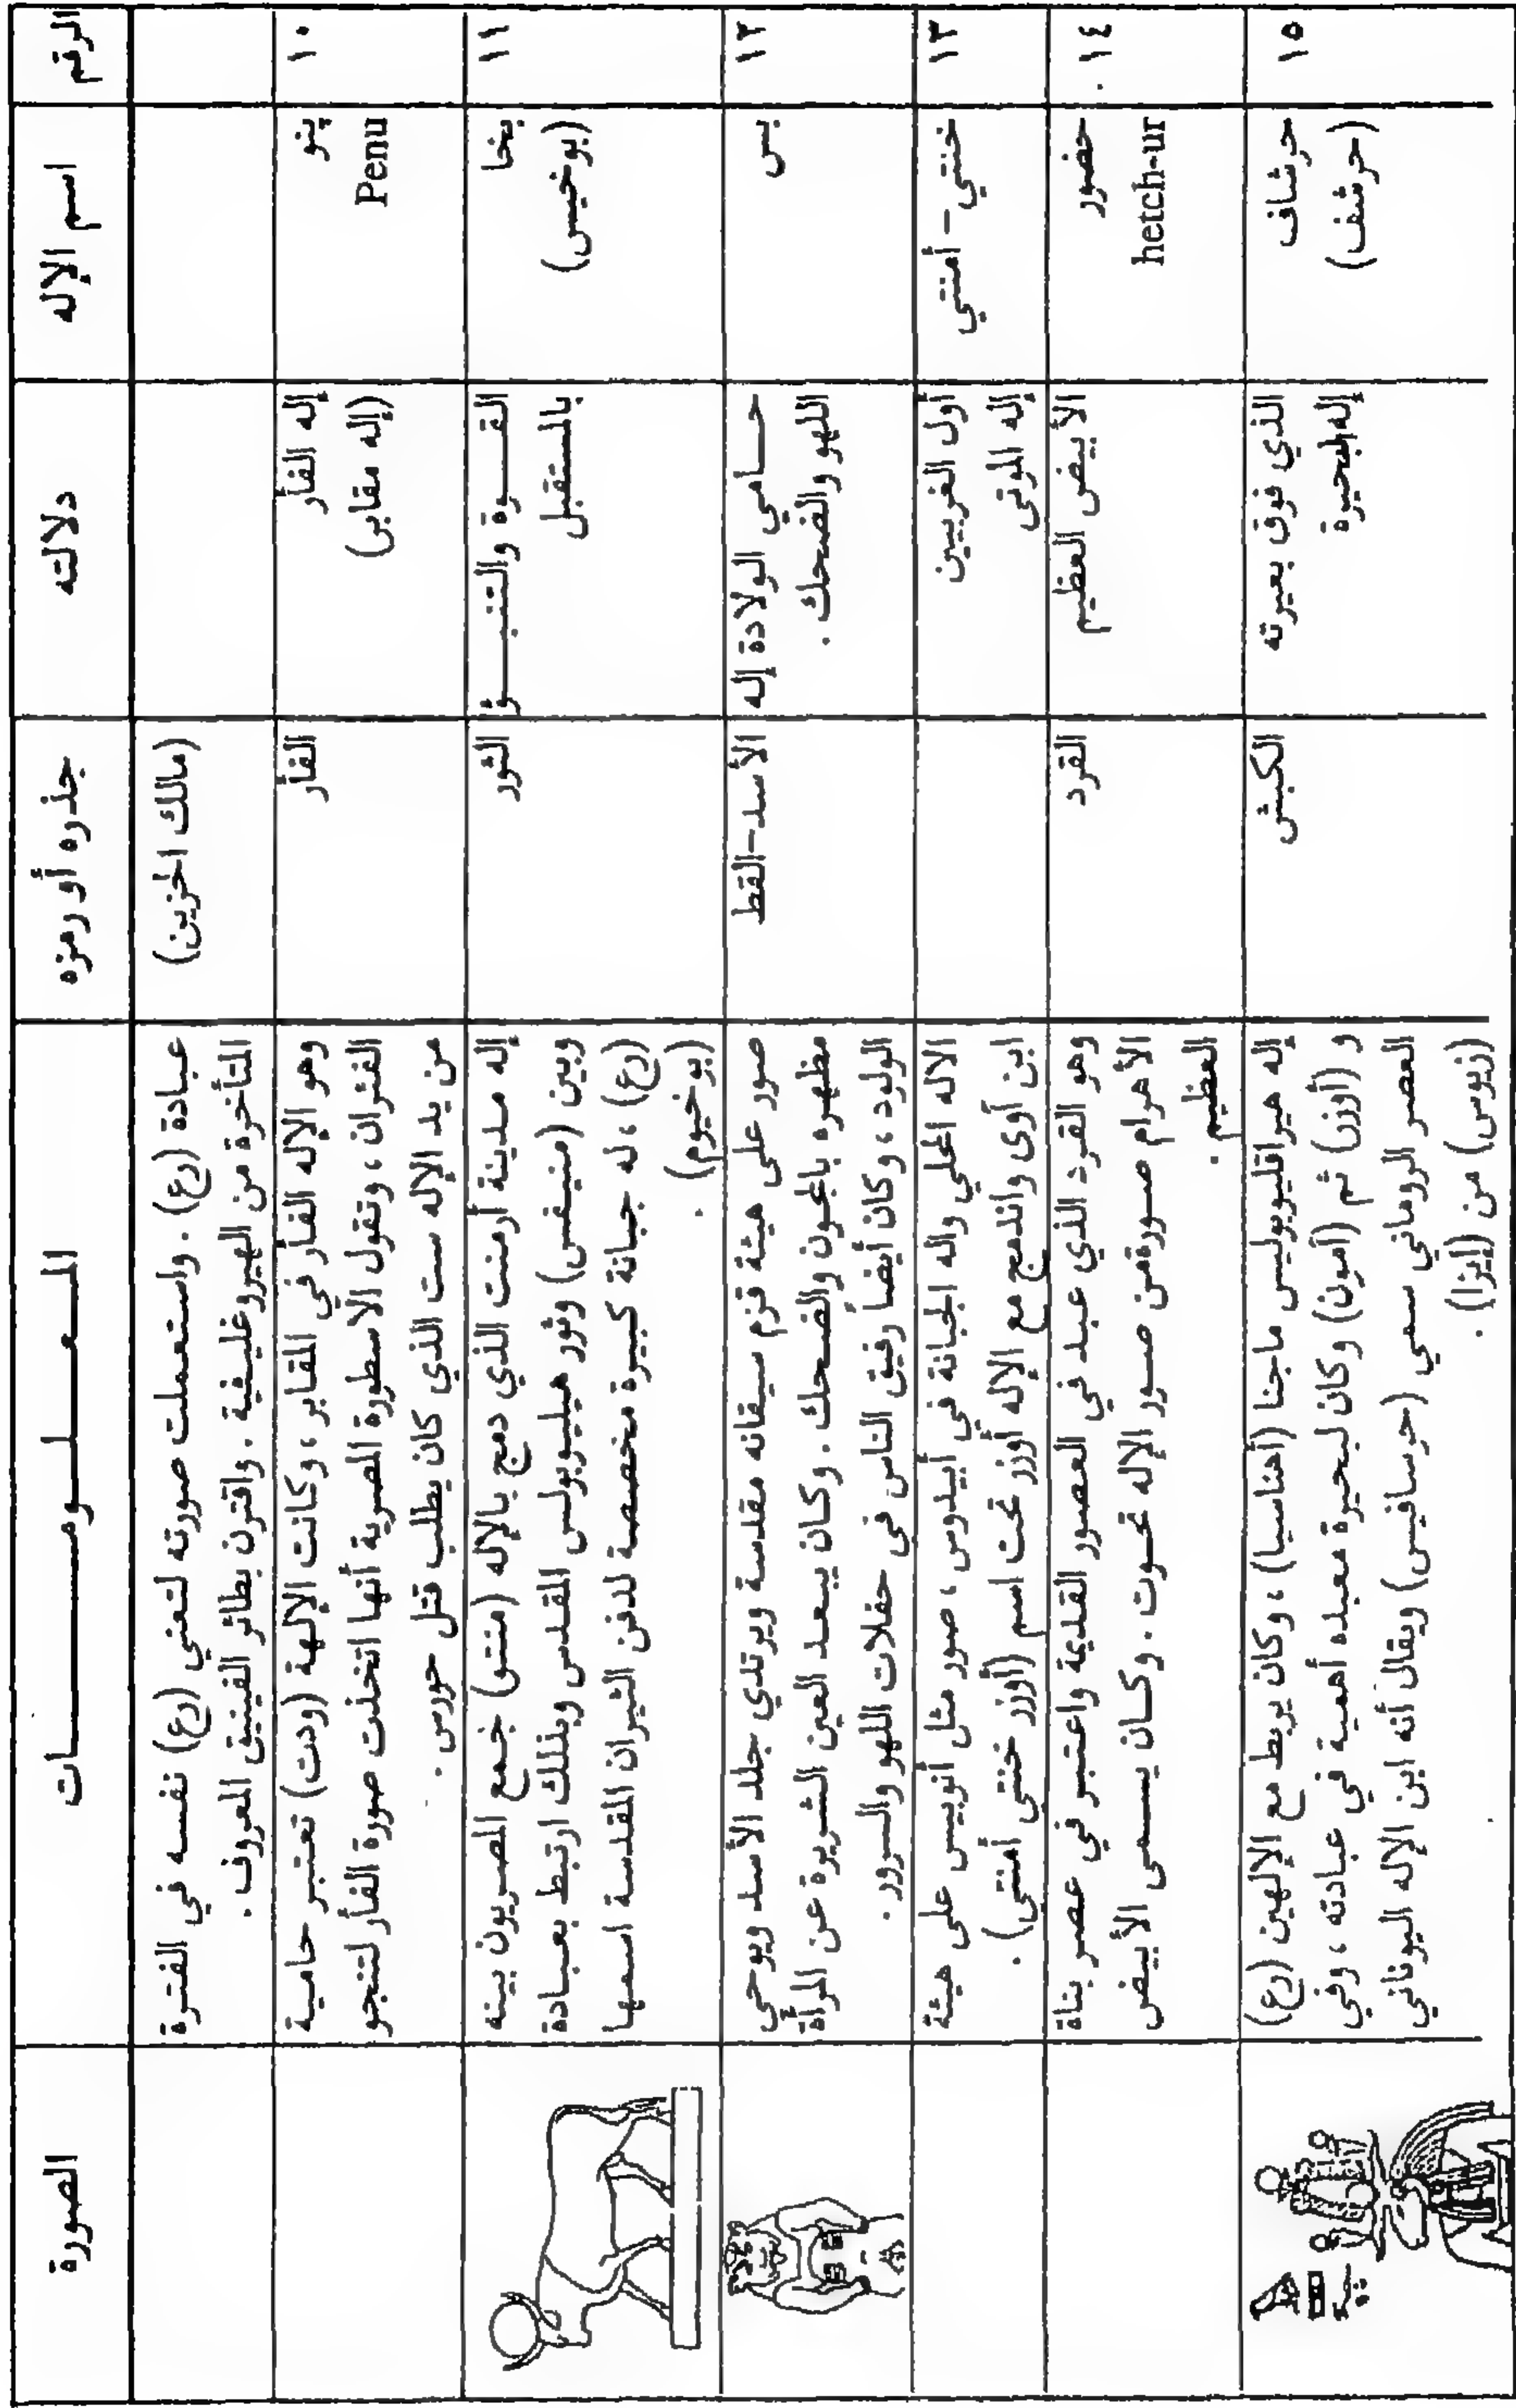 الرقم
اسم الإله
دلالته
جذره أو رمزه
المعلومات
الصورة
(مالك الحزين)
عبادة (رع). واستعملت صورته لتعني (رع) نفسه في الفترة
المتأخرة من الهيروغليفية. واقترن بطائر الفينيق المعروف.
١٠
پنو
Penu
إله الفأر
(إله مقابر)
الفأر
وهو الإله الفأر في المقابر، وكانت الإلهة (ودت) تعتبر حامية
الفئران، وتقول الاسطورة المصرية أنها اتخذت صورة الفأر لتنجو
من يد الإله ست الذي كان يطلب قتل حورس.
١١
بخا
(بوخيس)
القوة والتنبؤ
بالمستقبل
الثور
إله مدينة أرمنت الذي دمج بالإله (منتو) جمع المصريون بينه
وبين (منيفس) وثور هيليوبولس المقدس وبذلك ارتبط بعبادة
(رع)، له جبانة كبيرة مخصصة لدفن الثيران المقدسة اسمها
(بوخيوم).
١٢
بس
حامي الولادة إله
اللهو والضحك.
الأسد-القط
صور على هيئة قزم سيقانه مقدسة ويرتدي جلد الأسد ويوحي
مظهره بالمجون والضحك. وكان يبعد العين الشريرة عن المرأة
الولود، وكان أيضاً رفيق الناس في حفلات اللهو والسرور.
١٣
خنتي - أمنتي
أول الغربيين
إله الموتى
الاله المحلي واله الجبانة في أبيدوس، صور مثل أنوبيس على هيئة
ابن آوى واندمج مع الإله أوزر تحت اسم (أوزر خنتي أمنتي).
١٤.
حضور
hetch-ur
الأبيض العظيم
القرد
وهو القرد الذي عبد في العصور القديمة واعتبر في عصر بناة
الأهرام صورة من صور الإله تحوت. وكان يسمى الأبيض
العظيم.
١٥
حرشاف
(حرشف)
الذي فوق بعيرته
إله البحيرة
الكبش
إله هيراقليوبوليس ماجنا (أهناسيا)، وكان يربط مع الإلهين (رع)
و (أوزر) ثم (آمون) وكان لبحيرة معبده أهمية في عبادته، وفي
العصر الروماني سمي (حرسافيس) ويقال أنه ابن الإله اليوناني
(زيوس) من (إيزا).